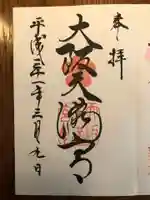 奉拝
大阪天満宮
平成三十一年三月九日